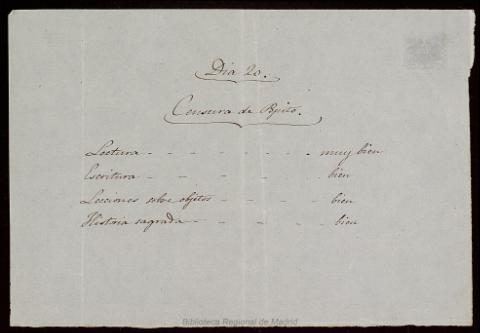 Dia 20.
Censura de Benito.
Lectura - - - - - - - muy bien
Escritura - - - - - - bien
Lecciones sobre objetos - - - - bien
Historia sagrada - - - - - bien
Biblioteca Regional de Madrid